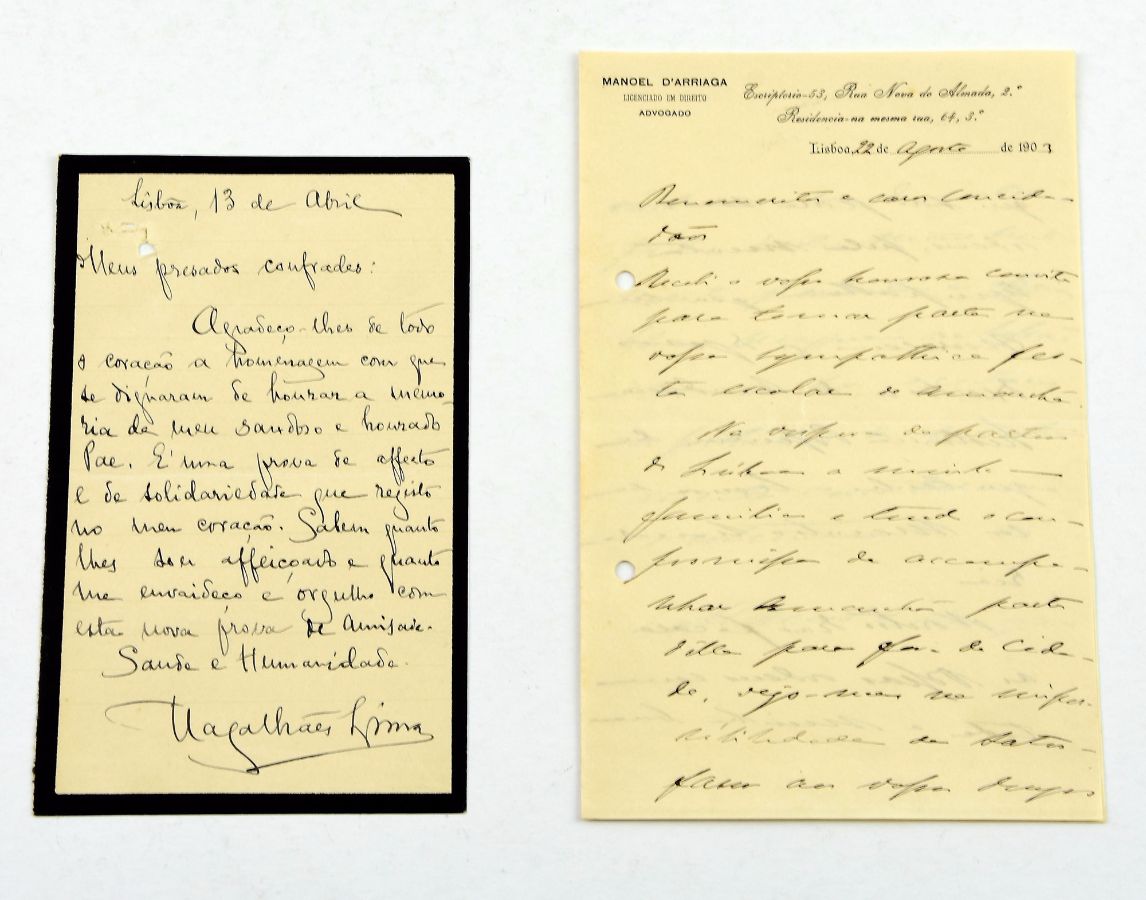 Lisbôa, 13 de Abril
Meus presados confrades:
Agradeço-lhes de todo
o coração a homenagem com que
se dignaram de honrar a memo-
ria de meu saudoso e honrado
Pae. É uma prova de affecto
e de solidariedade que registo
no meu coração. Sabem quanto
lhes sou affeiçoado e quanto
me envaideço e orgulho com
esta nova prova de amisade.
Saude e Humanidade.
Magalhães Lima
MANOEL D'ARRIAGA
LICENCIADO EM DIREITO
ADVOGADO
Escriptorio-53, Rua Nova do Almada, 2.º
Residencia-na mesma rua, 64, 3.º
Lisboa, 22 de Agosto de 1903
Benemeritos e caros concida-
dãos
Recebi o vosso honroso convite
para tomar parte na
vossa sympathica fes-
ta escolar de amanhã.
Na vespera da partida
de Lisboa a minha
familia e tendo o com-
promisso de accompa-
nhar amanhã parte
d'ella para fora da Cida-
de, vejo-me na impos-
sibilidade de satis-
fazer ao vosso